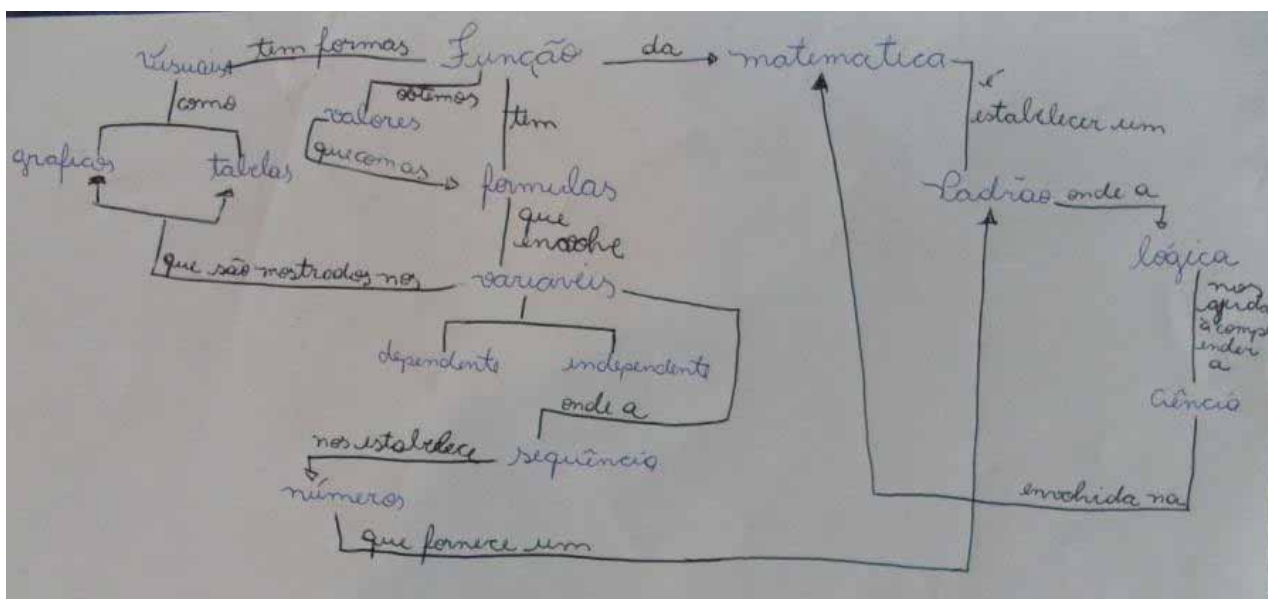 Visuais tem formas Função da matematica
é
estabelecer um
como
obtemos
valores
tem
graficos
tabelas
que com as
formulas
Padrão onde a
lógica
que
envolve
que são mostrados nos
variavéis
nos
ajuda
a compr
ender
a
Ciência
dependente
independente
onde a
nos estabelece
sequência
números
envolvida na
que fornece um